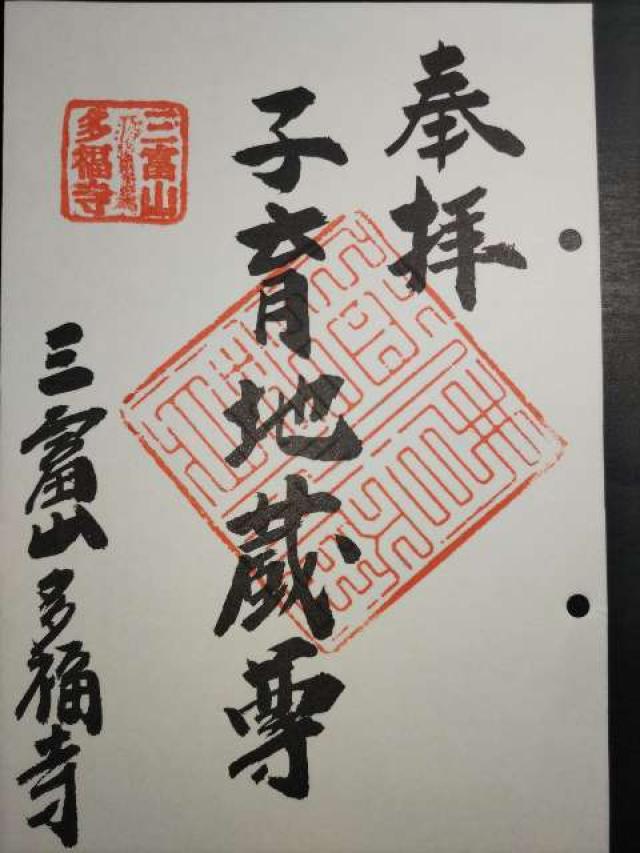 奉拝
子育地蔵尊
三富山
多福寺
三富山多福寺